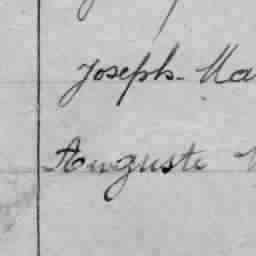 Joseph-Ma
Auguste